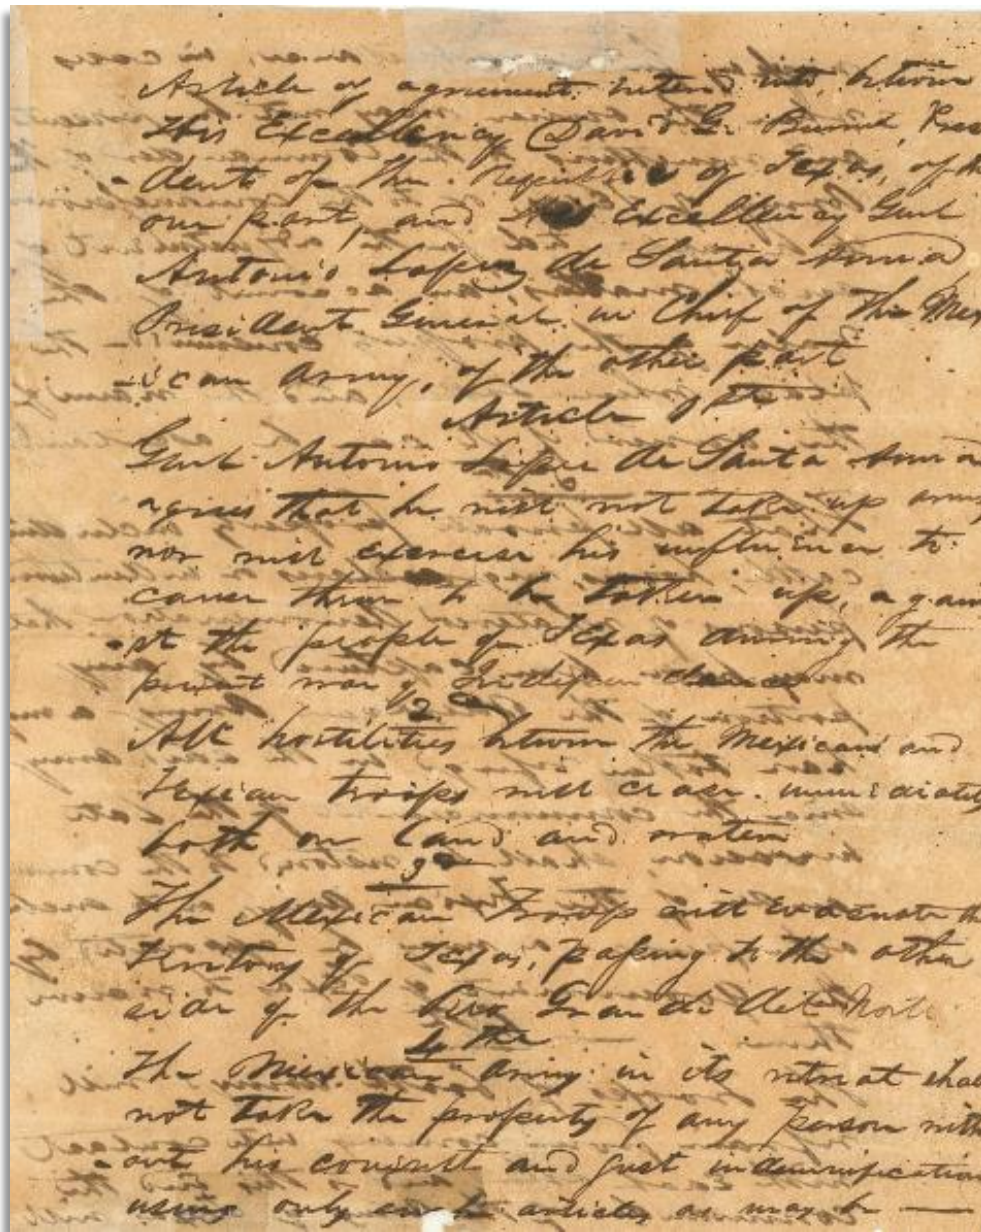 Article of agreement entered into, between
His Excellency David G. Burnet, Presi
-dent of the Republic of Texas, of the
one part, and His Excellency Genl
Antonio Lopez de Santa Anna
President General in Chief of the Mex
-ican Army, of the other part
Article 1st
Genl Antonio Lopez de Santa Anna
agrees that he will not take up arms
nor will exercise his influence to
cause them to be taken up, again
-st the people of Texas during the
present war of Independence
2
All hostilities between the Mexican and
Texian troops will cease immediately
both on land and water
3
The Mexican Troops will evacuate the
Territory of Texas, passing to the other
side of the Rio Grande del Norte
4th
The Mexican Army in its retreat shall
not take the property of any person with
-out his consent and just indemnification
using only such articles as may be —